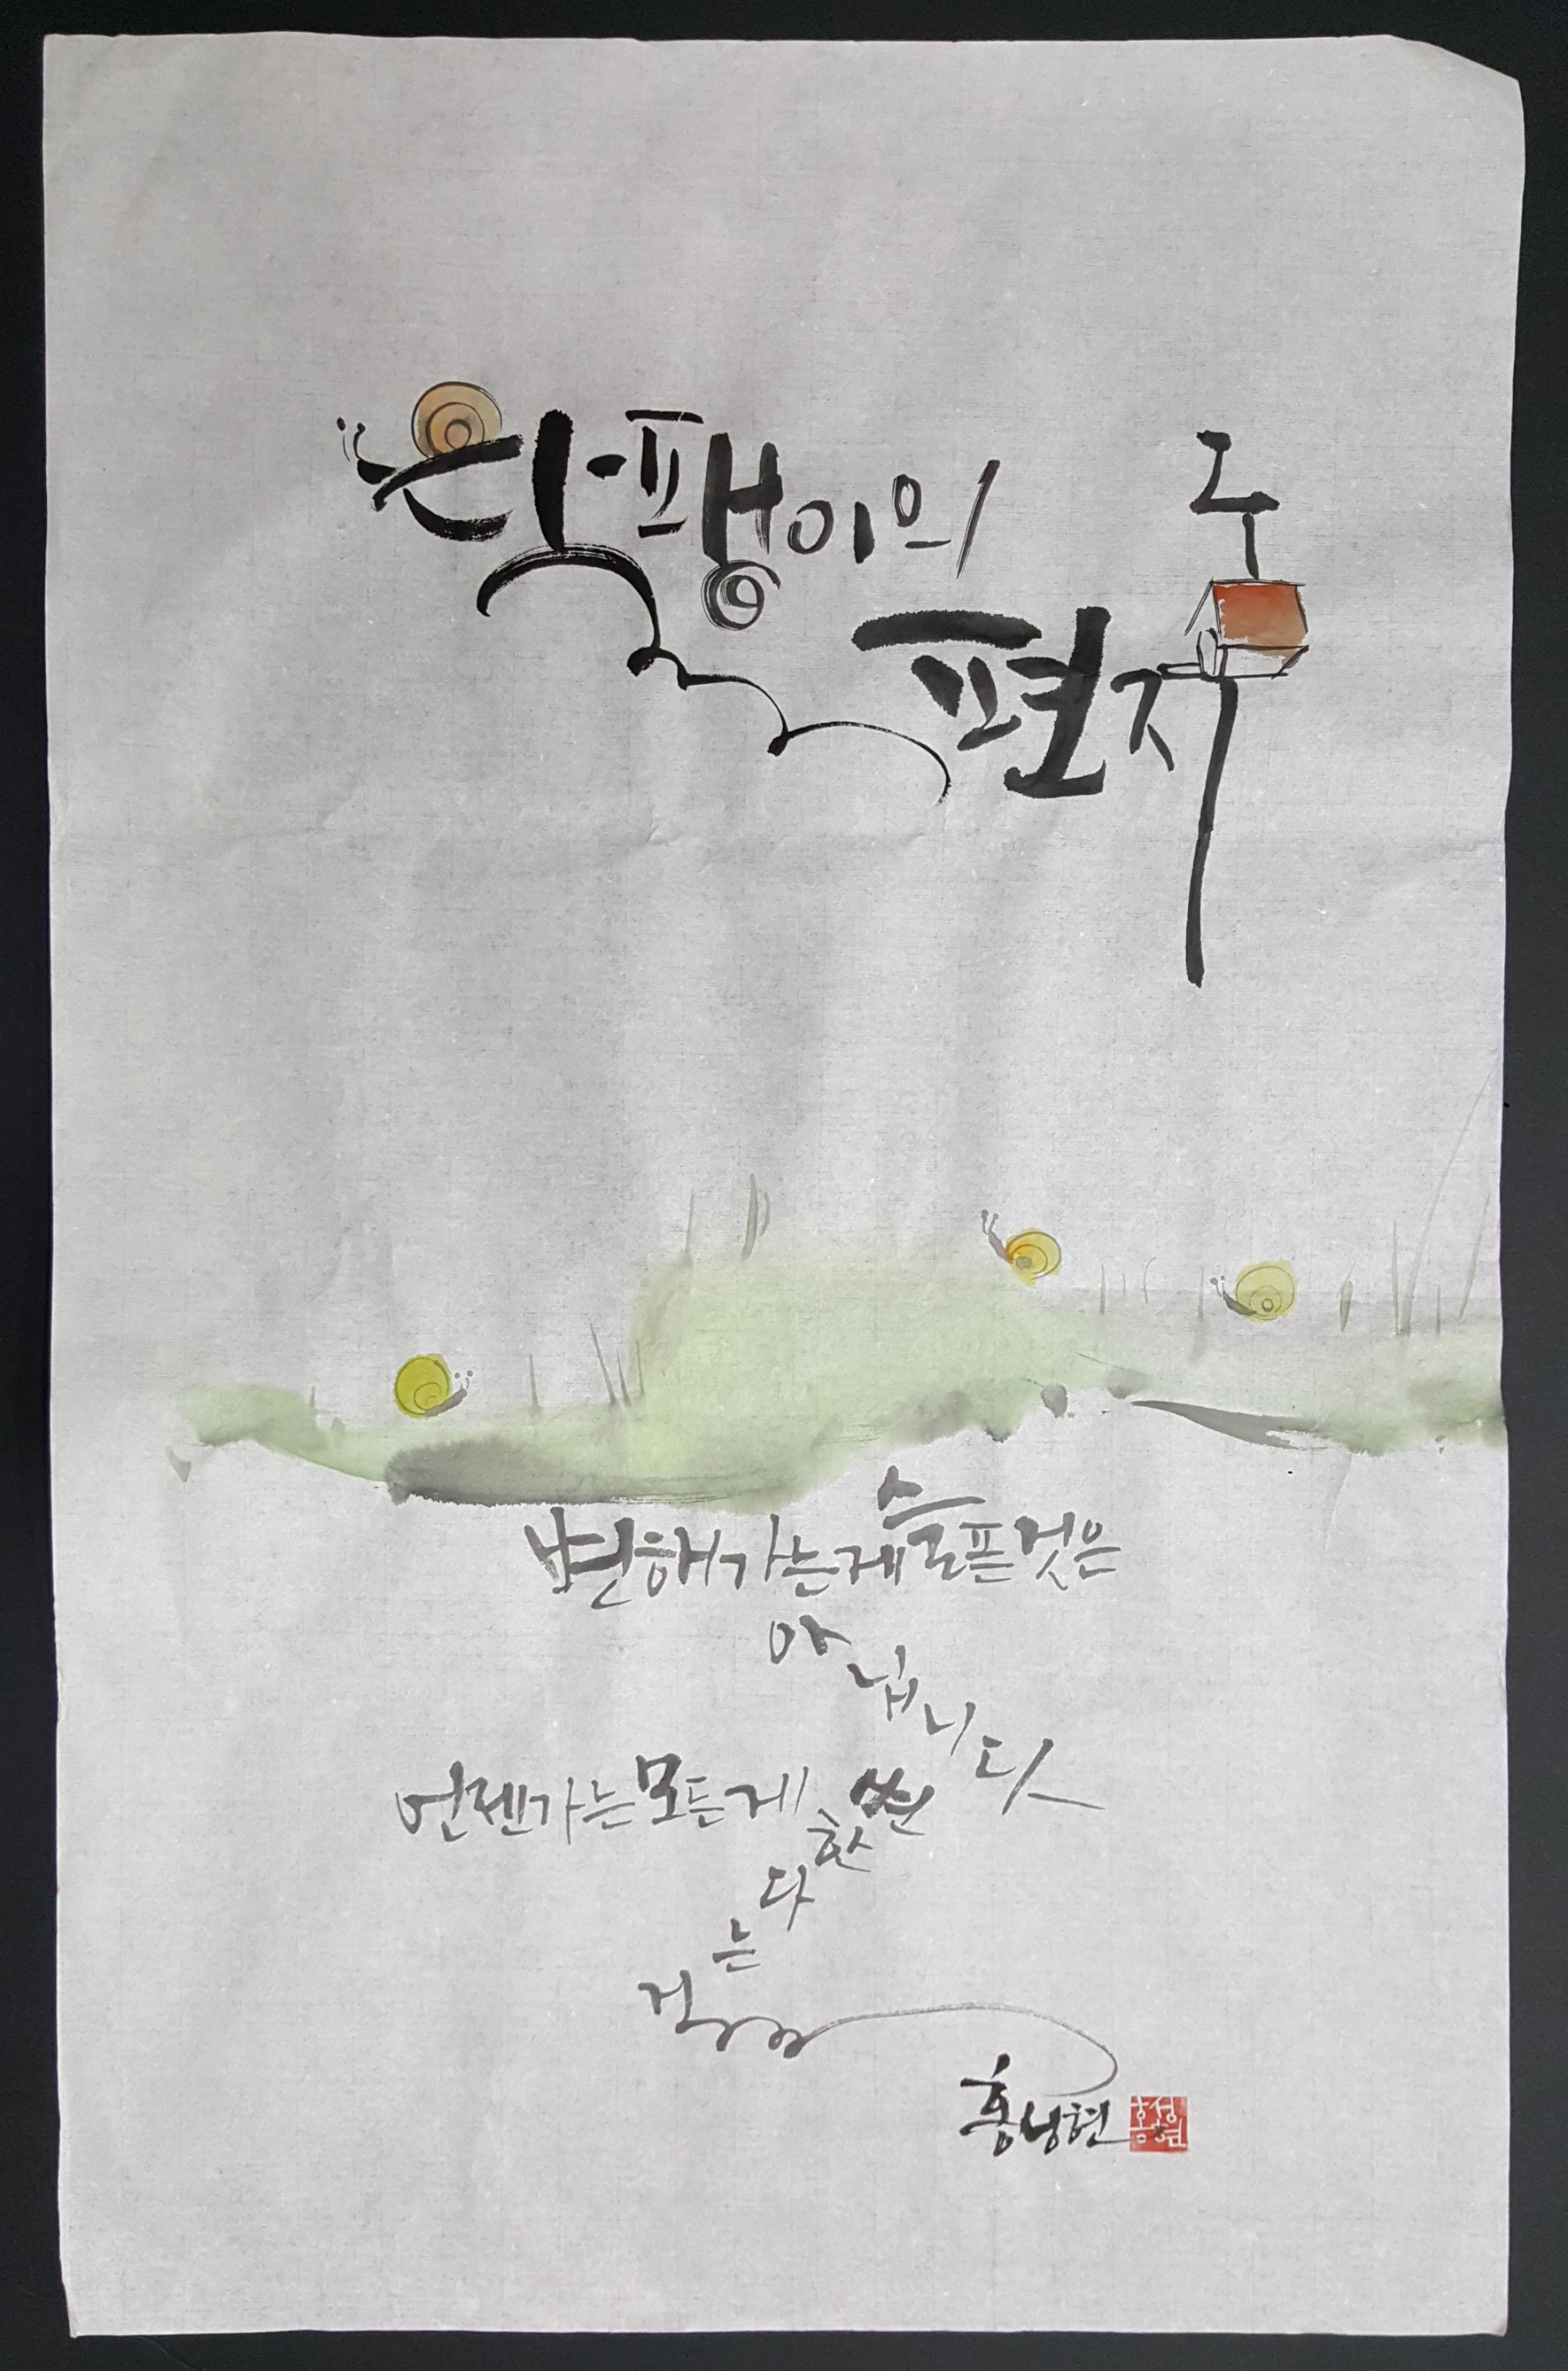 달팽이의 두
편지
변해가는게 슬픈것은
아닙니다
언젠가는 모든게 변한다는걸
홍성현
홍성현